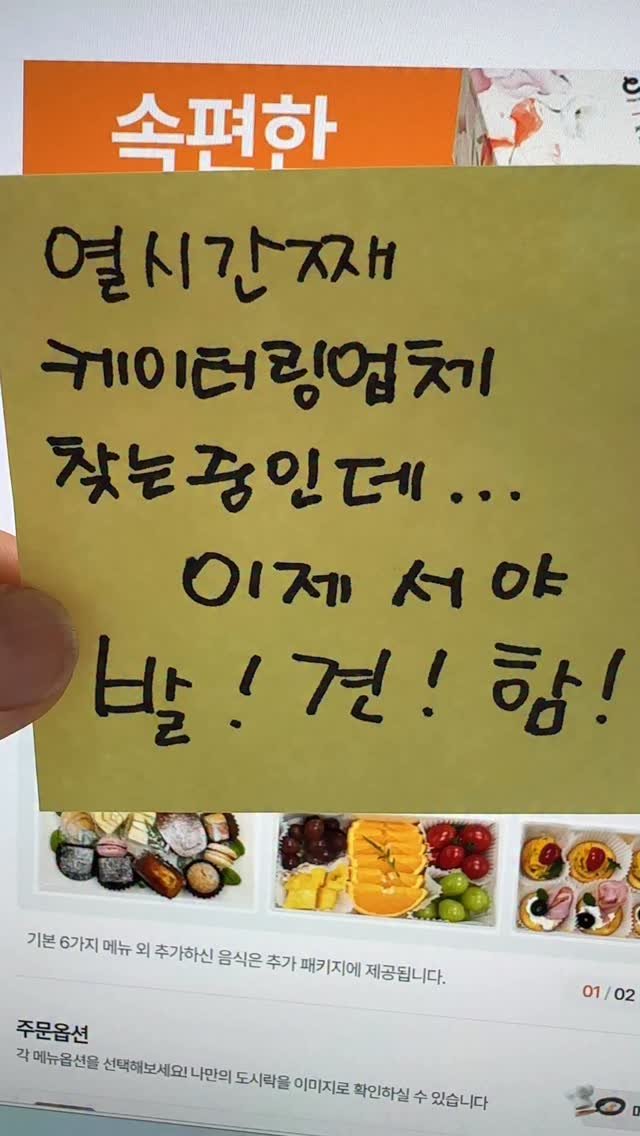 속편한
열시간째
케이터링업체
찾는중인데...
이제서야
발!견!함!
기본 6가지 메뉴 외 추가하신 음식은 추가 패키지에 제공됩니다.
01 / 02
주문옵션
각 메뉴옵션을 선택해보세요! 나만의 도시락을 이미지로 확인하실 수 있습니다